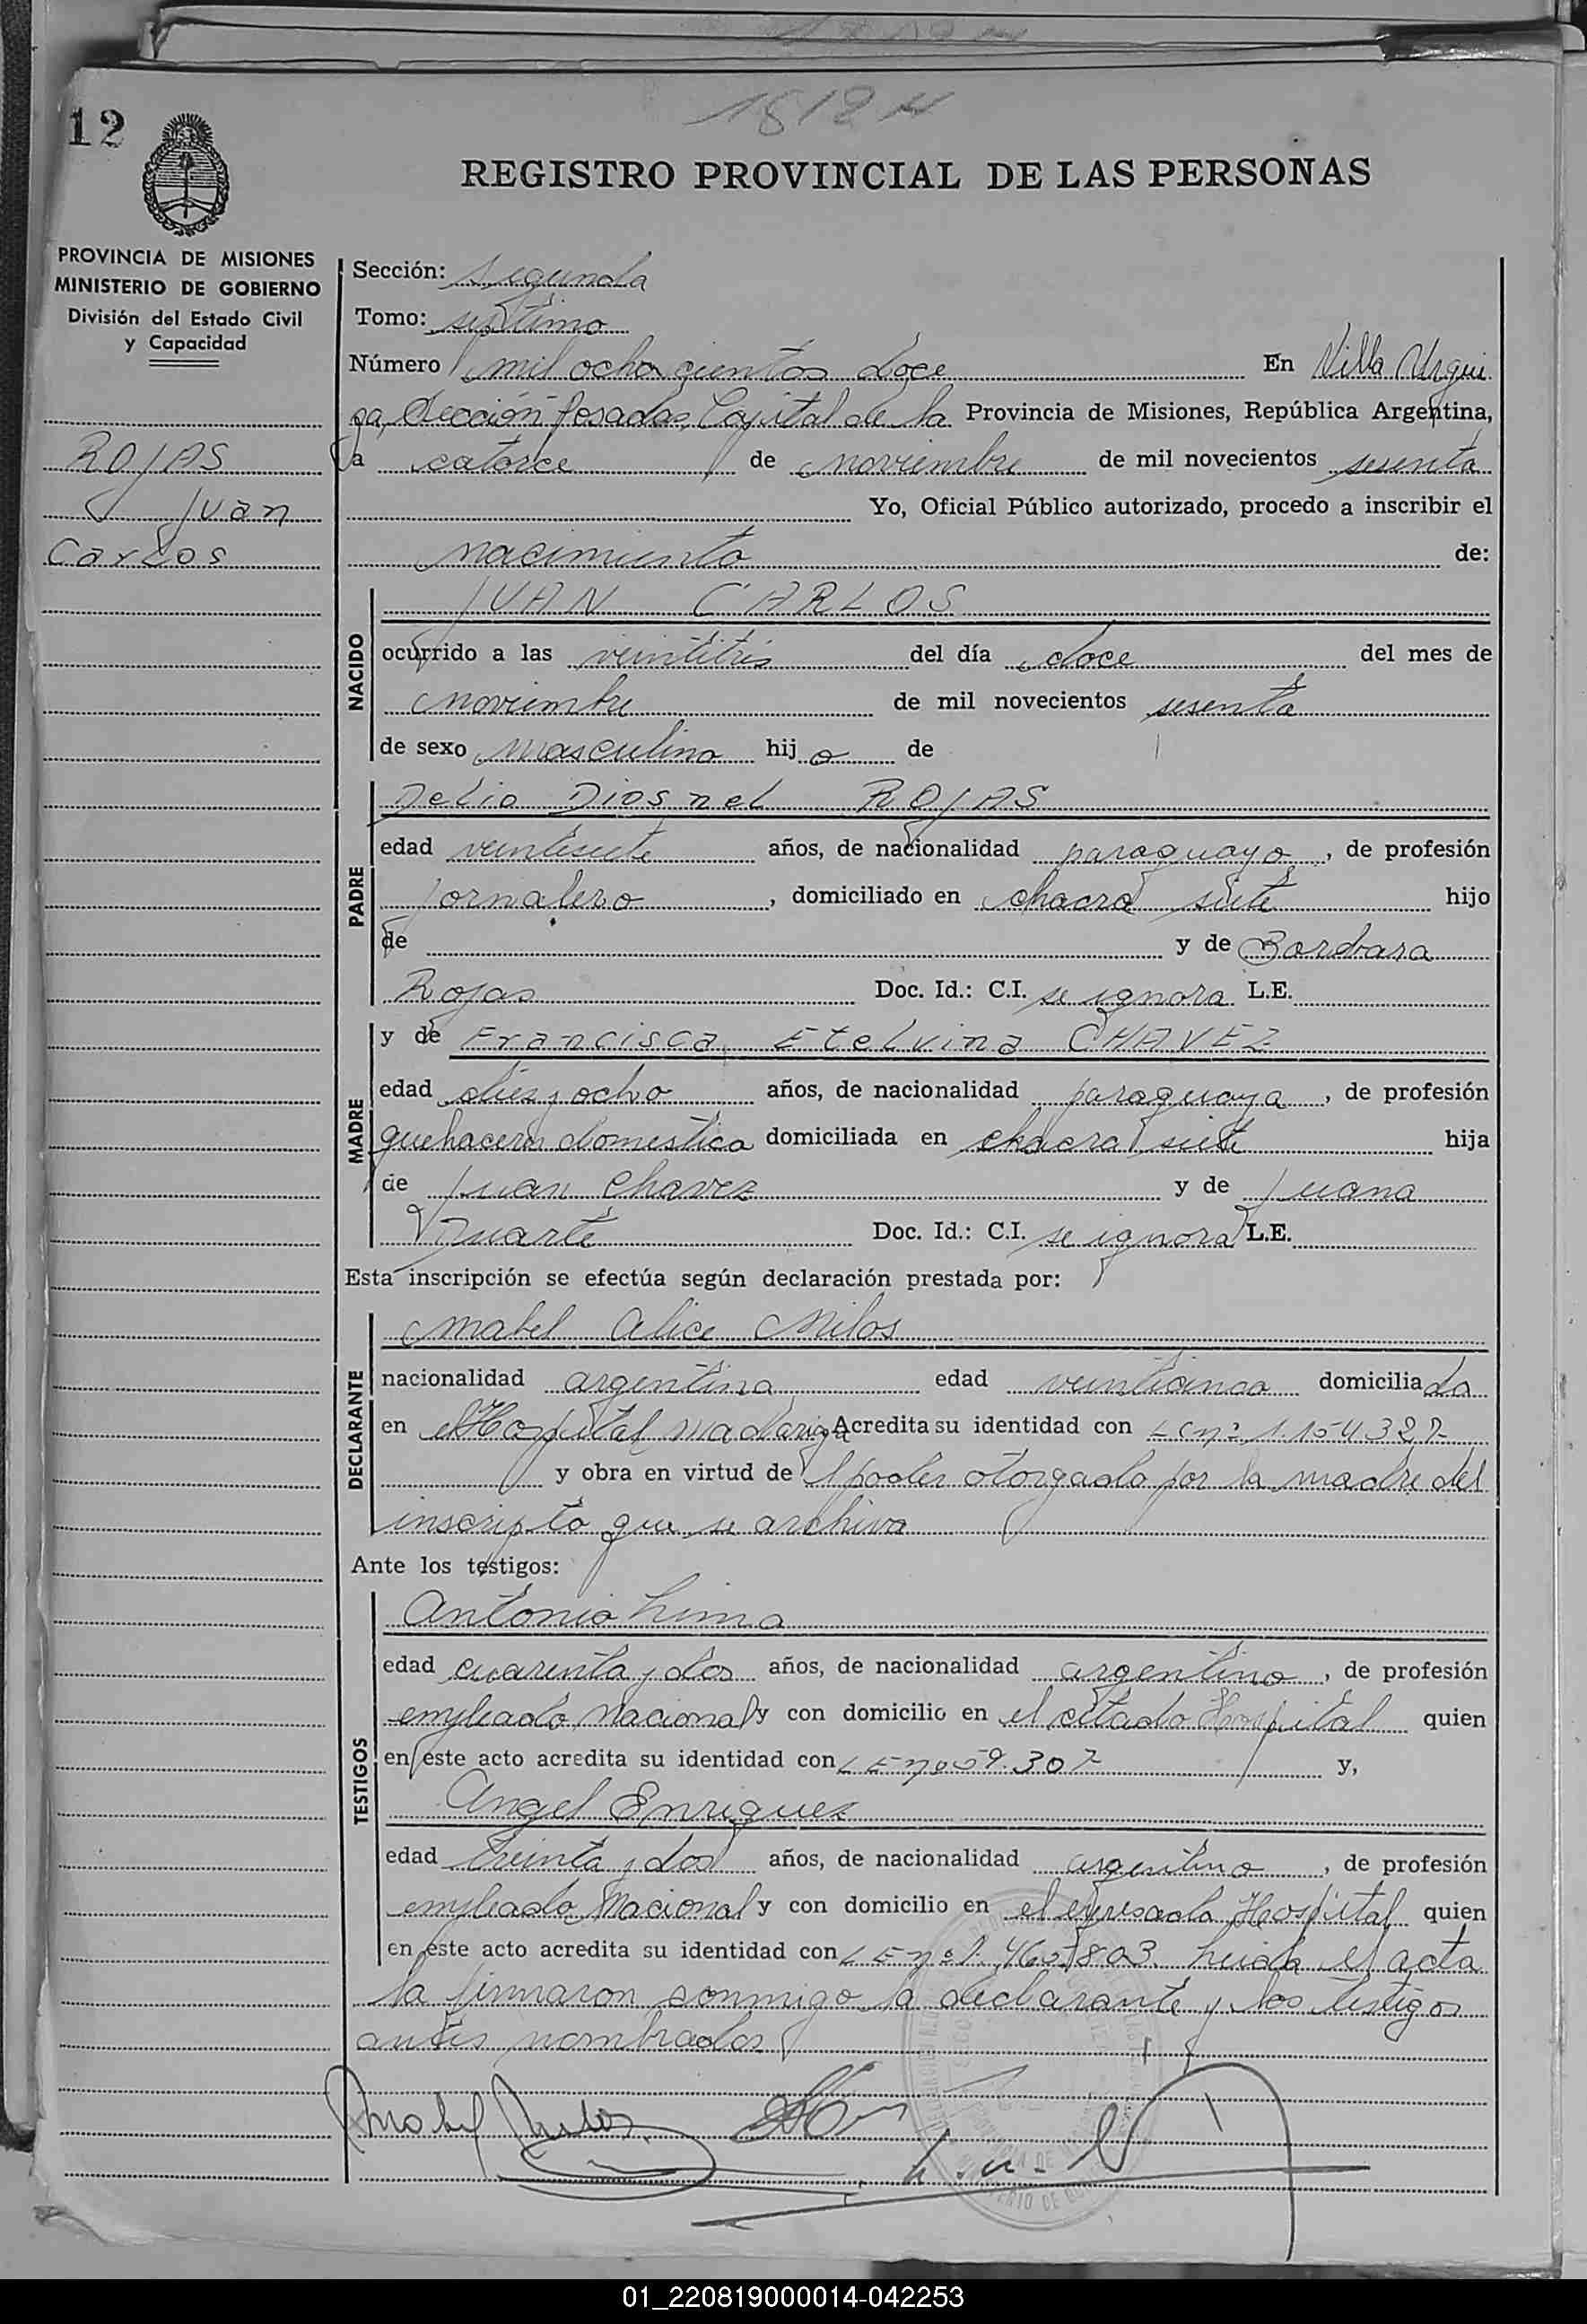 1812 N
12
REGISTRO PROVINCIAL DE LAS PERSONAS
PROVINCIA DE MISIONES
MINISTERIO DE GOBIERNO
División del Estado Civil
y Capacidad
ROJAS
Juan
Carlos
Sección: Segunda
Tomo: septimo
Número mil ochocientos doce En Villa Urqui
za, Sección Posadas, Capital de la Provincia de Misiones, República Argentina,
a catorce de noviembre de mil novecientos sesenta
Yo, Oficial Público autorizado, procedo a inscribir el
nacimiento de:
NACIDO
JUAN CARLOS
ocurrido a las veintitrés del día doce del mes de
noviembre de mil novecientos sesenta
de sexo masculino hijo de
PADRE
Delio Diosnel ROJAS
edad veintisiete años, de nacionalidad paraguayo, de profesión
jornalero, domiciliado en chacra siete hijo
de y de Barbara
Rojas Doc. Id.: C.I. se ignora L.E.
MADRE
y de Francisca Etelvina CHAVEZ
edad diez y ocho años, de nacionalidad paraguaya, de profesión
quehacer domestico domiciliada en chacra siete hija
de Juan Chavez y de Juana
Duarte Doc. Id.: C.I. se ignora L.E.
Esta inscripción se efectúa según declaración prestada por:
DECLARANTE
Mabel Alice Milos
nacionalidad argentina edad veinticinco domiciliada
en el Hospital Madariaga Acredita su identidad con L C nº 1.154.327
y obra en virtud de poder otorgado por la madre del
inscripto que se archiva
Ante los testigos:
TESTIGOS
Antonio Lima
edad cuarenta y dos años, de nacionalidad argentino, de profesión
empleado Nacional y con domicilio en el citado Hospital quien
en este acto acredita su identidad con L E nº 59.307 y,
Angel Enriquez
edad treinta y dos años, de nacionalidad argentino, de profesión
empleado Nacional y con domicilio en el expresado Hospital quien
en este acto acredita su identidad con L E nº 1.465.803. Leida el acta
la firmaron conmigo la declarante y los testigos
antes nombrados
Mabel Milos
01_220819000014-042253